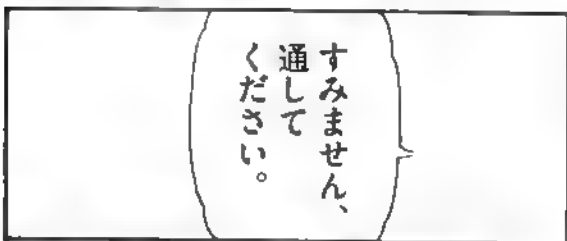 すみません、
通して
ください。